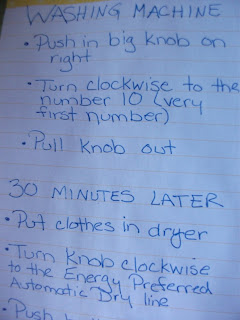 WASHING MACHINE
• Push in big knob on
right
• Turn clockwise to the
number 10 (very
first number)
• Pull knob out
30 MINUTES LATER
• Put clothes in dryer
• Turn knob clockwise
to the Energy Preferred
Automatic Dry line
• Push